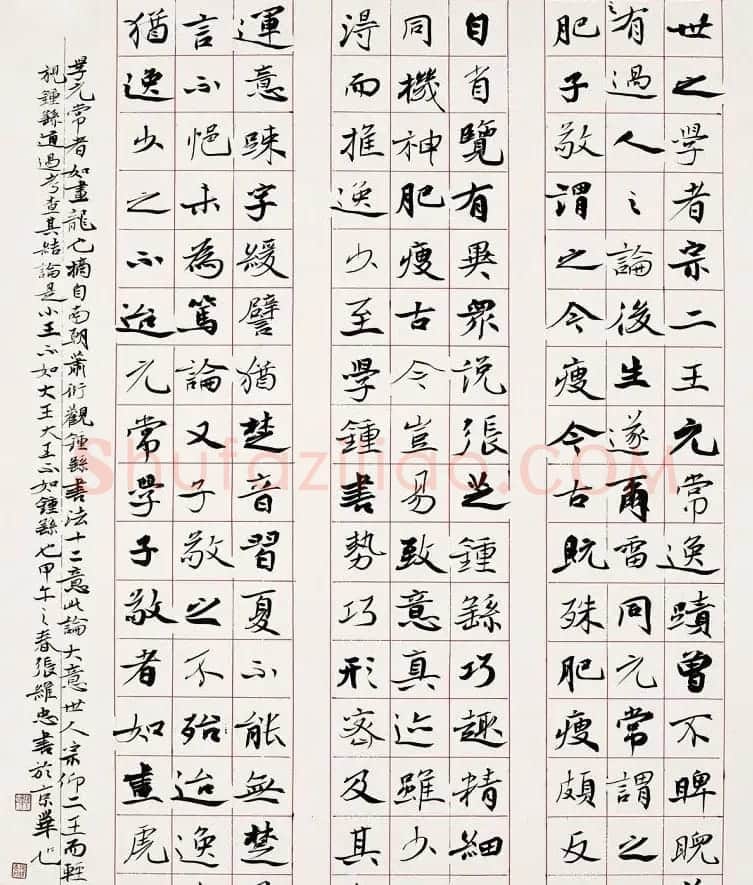 世之學者宗二王元常逸蹟曾不睥睨
有過人之論後生遂爾雷同元常謂之
肥子敬謂之今瘦今古既殊肥瘦頗反
自省覽有異眾說張芝鍾繇巧趣精細
同機神肥瘦古今豈易致意真迹雖少
淂而推逸少至學鍾書勢巧形密及其
運意踈字緩譬猶楚音習夏不能無楚
言不悒未為篤論又子敬之不殆迨逸
猶逸少之不迨元常學子敬者如畫虎
學元常者如畫龍也摘自南朝蕭衍觀鍾繇書法十二意此論大意世人宗仰二王而輕
視鍾繇通過考查其結論是小王不如大王大王不如鍾繇也甲午之春張維忠書於京華
Shufaziliao.COM